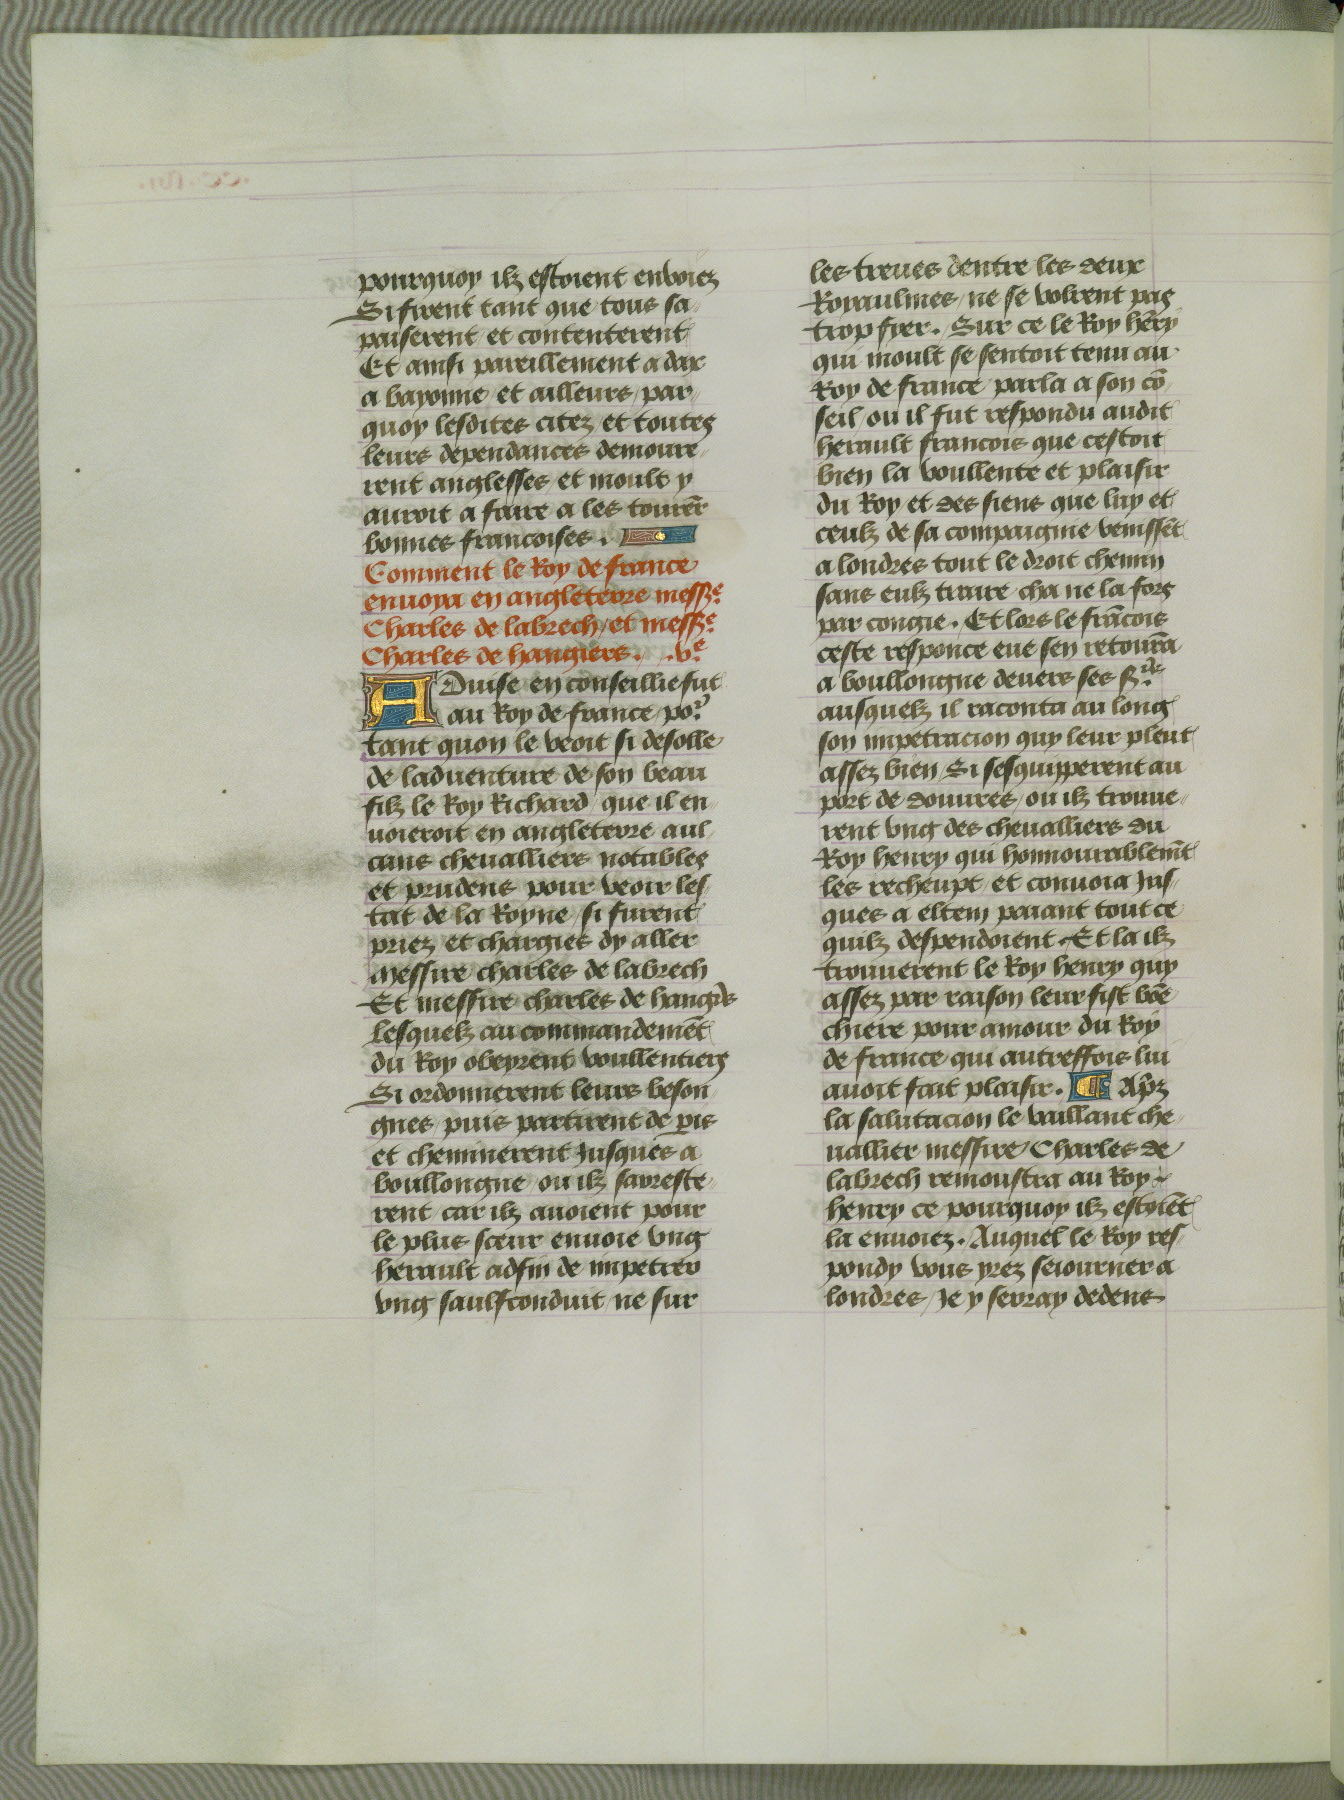 pourquoy ilz estoient enuoiez
Si firent tant que tous sa
paiserent et contenterent
Et ainsi pareillement a dax
a bayonne / et ailleurs / par
quoy lesdites citez et toutes
leurs dependances demoure
rent anglesses / et moult y
auroit a faire a les tourner
bonnes francoises .
Comment le Roy de france
enuoya en angleterre messre.
Charles de labrech / et messre.
Charles de hangiers . .ve.
ADuise en conseillie fut
au Roy de france / por
tant quon le veoit si desolle
de laduenture de son beau
filz le Roy Richard / que il en
uoieroit en angleterre aul
cuns cheualliers notables
et prudens pour veoir les
tat de la Royne / si furent
priez et chargies dy aller
messire charles de labrech
Et messire charles de hangrs
lesquelz au commandemēt
du Roy obeyrent voullentiers
Si ordonnerent leurs beson
gnes / puis partirent de pis
et cheminerent jusques a
boullongne / ou ilz sarreste
rent car ilz auoient pour
le plus sœur enuoie vng
herault adfin de impetrer
vng saulfconduit / ne sur
les treues dentre les deux
Royaulmes / ne se volrent pas
trop fyer . Sur ce le Roy hēry
qui moult se sentoit tenu au
Roy de france / parla a son cō
seil / ou il fut respondu audit
herault francois que cestoit
bien la voullente et plaisir
du Roy et des siens que luy et
ceulz de sa compaignie venissēt
a londres tout le droit chemin
sans eulz traire cha ne la fors
par congie . Et lors le frācois
ceste responce eue sen retourna
a boullongne deuers ses srs
ausquelz il raconta au long
son impetracion quy leur pleut
assez bien / Si sesquipperent au
port de douures / ou ilz trouue
rent vng des cheualliers du
Roy henry qui honnourablemēt
les recheupt / et conuoia jus
ques a eltem paiant tout ce
quilz despendoient / Et la ilz
trouuerent le Roy henry quy
assez par raison leur fist bōe
chiere pour amour du Roy
de france qui autreffois lui
auoit fait plaisir . ¶ Aps
la salutacion le vaillant che
uallier messire Charles de
labrech remoustra au Roy
henry ce pourquoy ilz estoiēt
la enuoiez . Auquel le Roy res
pondy vous yrez seiourner a
londres / Je y seray dedens